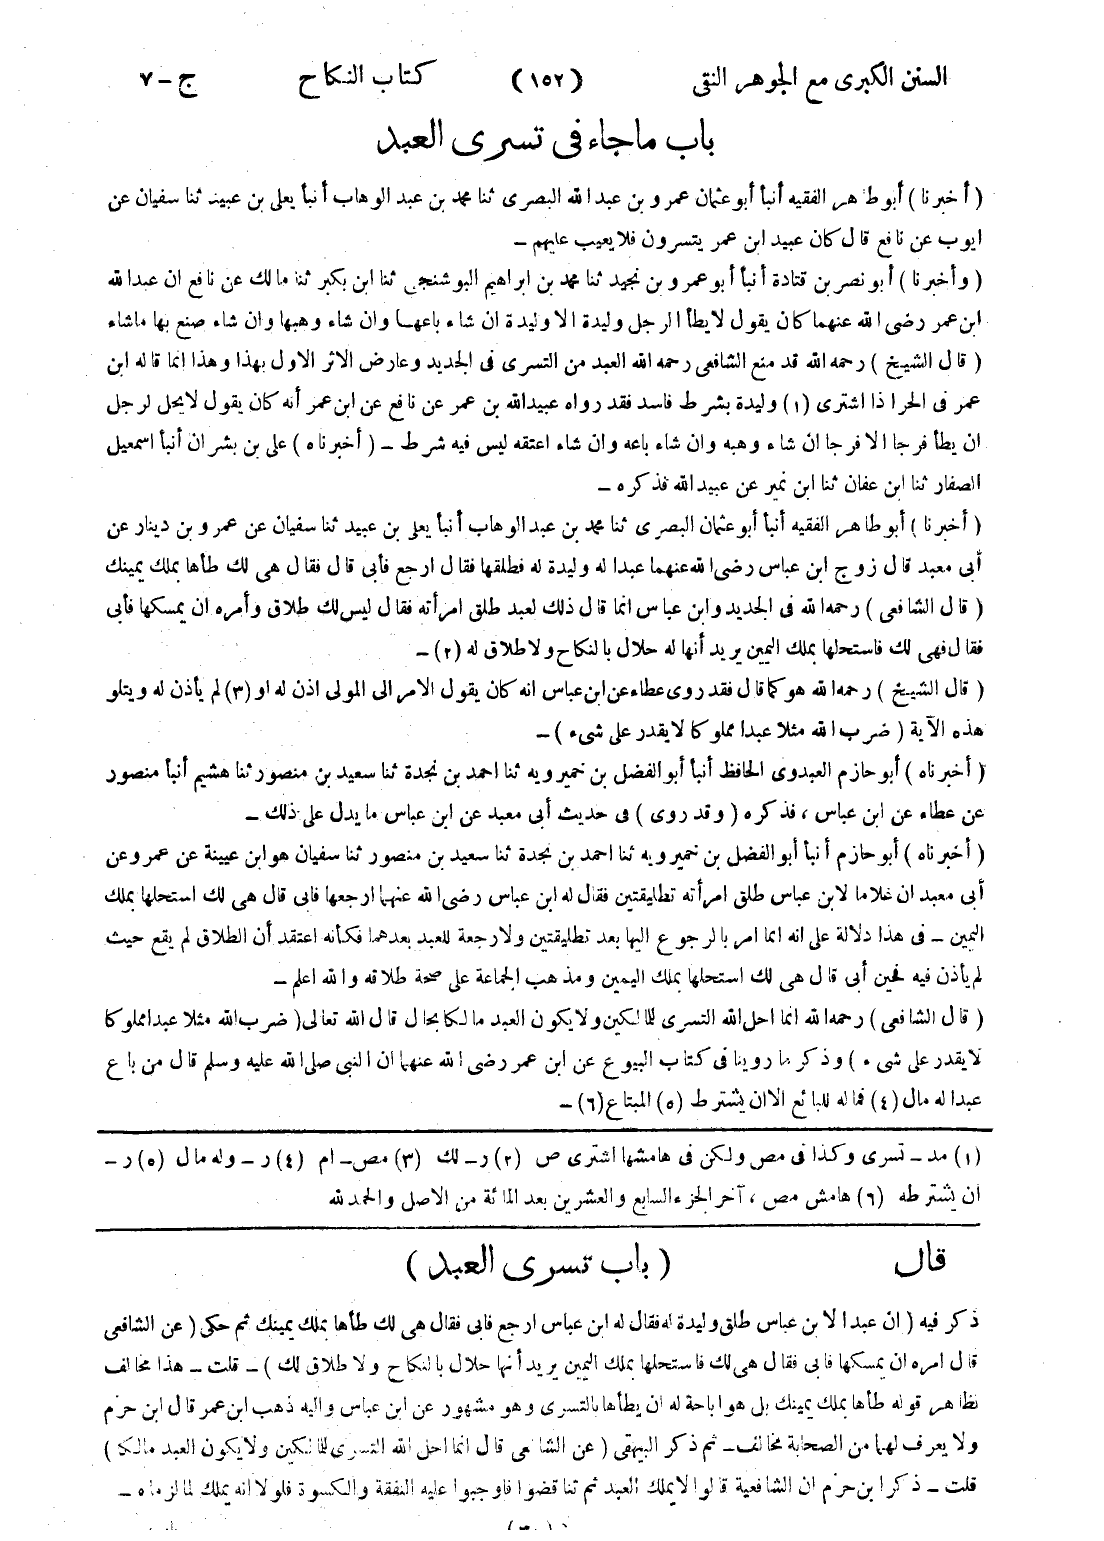 السنن الكبرى مع الجوهر النقى (١٥٢) كتاب النكاح ج - ٧
باب ماجاء فى تسرى العبد
( أخبرنا ) أبو طاهر الفقيه أنبأ أبو عثمان عمرو بن عبد الله البصرى ثنا محمد بن عبد الوهاب أنبأ يعلى بن عبيد ثنا سفيان عن
ايوب عن نافع قال كان عبيد ابن عمر يتسرون فلا يعيب عليهم -
( وأخبرنا ) أبو نصر بن قتادة أنبأ أبو عمرو بن نجيد ثنا محمد بن ابراهيم البوشنجى ثنا ابن بكير ثنا مالك عن نافع ان عبدالله
ابن عمر رضى الله عنهما كان يقول لا يطأ الرجل وليدة الا وليدة ان شاء باعها وان شاء وهبها وان شاء صنع بها ماشاء
( قال الشيخ ) رحمه الله قد منع الشافعى رحمه الله العبد من التسرى فى الجديد وعارض الاثر الاول بهذا وهذا انما قاله ابن
عمر فى الحر اذا اشترى (١) وليدة بشرط فاسد فقد رواه عبيدالله بن عمر عن نافع عن ابن عمر أنه كان يقول لا يحل لرجل
ان يطأ فرجا الا فرجا ان شاء وهبه وان شاء باعه وان شاء اعتقه ليس فيه شرط - ( أخبرناه ) على بن بشران أنبأ اسمعيل
الصفار ثنا ابن عفان ثنا ابن نمير عن عبيد الله فذكره -
( أخبرنا ) أبو طاهر الفقيه أنبأ أبو عثمان البصرى ثنا محمد بن عبد الوهاب أنبأ يعلى بن عبيد ثنا سفيان عن عمرو بن دينار عن
أبى معبد قال زوج ابن عباس رضى الله عنهما عبدا له وليدة له فطلقها فقال ارجع فأبى قال فقال هى لك طأها بملك يمينك
( قال الشافعى ) رحمه الله فى الجديد وابن عباس انما قال ذلك لعبد طلق امرأته فقال ليس لك طلاق وأمره ان يمسكها فأبى
فقال فهى لك فاستحلها بملك اليمين يريد أنها له حلال بالنكاح ولا طلاق له (٢) -
( قال الشيخ ) رحمه الله هو كما قال فقد روى عطاء عن ابن عباس انه كان يقول الامر الى المولى اذن له او (٣) لم يأذن له ويتلو
هذه الآية ( ضرب الله مثلا عبدا مملوكا لا يقدر على شىء ) -
( أخبرناه ) أبو حازم العبدوى الحافظ أنبأ أبو الفضل بن خميرويه ثنا احمد بن نجدة ثنا سعيد بن منصور ثنا هشيم أنبأ منصور
عن عطاء عن ابن عباس ، فذكره ( وقد روى ) فى حديث أبى معبد عن ابن عباس ما يدل على ذلك -
( أخبرناه ) أبو حازم أنبأ أبو الفضل بن خميرويه ثنا احمد بن نجدة ثنا سعيد بن منصور ثنا سفيان هو ابن عيينة عن عمرو عن
أبى معبد ان غلاما لابن عباس طلق امرأته تطليقتين فقال له ابن عباس رضى الله عنهما ارجعها فابى قال هى لك استحلها بملك
اليمين - فى هذا دلالة على انه انما امر بالرجوع اليها بعد تطليقتين ولا رجعة للعبد بعدهما فكأنه اعتقد أن الطلاق لم يقع حيث
لم يأذن فيه فحين أبى قال هى لك استحلها بملك اليمين ومذهب الجماعة على صحة طلاقه والله اعلم -
( قال الشافعى ) رحمه الله انما احل الله التسرى للمالكين ولا يكون العبد مالكا بحال قال الله تعالى ( ضرب الله مثلا عبدا مملوكا
لا يقدر على شىء ) وذكر ما روينا فى كتاب البيوع عن ابن عمر رضى الله عنهما ان النبى صلى الله عليه وسلم قال من باع
عبدا له مال (٤) فماله للبائع الا ان يشترط (٥) المبتاع (٦) -
(١) مد - تسرى وكذا فى مص ولكن فى هامشها اشترى ص (٢) ر - لك (٣) مص - ام (٤) ر - وله مال (٥) ر -
ان يشترطه (٦) هامش مص ، آخر الجزء السابع والعشرين بعد المائة من الاصل والحمد لله
قال ( باب تسرى العبد )
ذكر فيه ( ان عبدا لابن عباس طلق وليدة له فقال له ابن عباس ارجع فابى فقال هى لك طأها بملك يمينك ثم حكى ( عن الشافعى
قال امره ان يمسكها فابى فقال هى لك فاستحلها بملك اليمين يريد أنها حلال بالنكاح ولا طلاق لك ) - قلت - هذا مخالف
لظاهر قوله طأها بملك يمينك بل هو اباحة له ان يطأها بالتسرى وهو مشهور عن ابن عباس واليه ذهب ابن عمر قال ابن حزم
ولا يعرف لهما من الصحابة مخالف - ثم ذكر البيهقى ( عن الشافعى قال انما احل الله التسرى للمالكين ولا يكون العبد مالكا )
قلت - ذكر ابن حزم ان الشافعية قالوا لا يملك العبد ثم تناقضوا فاوجبوا عليه النفقة والكسوة فلولا انه يملك لما لزماه -